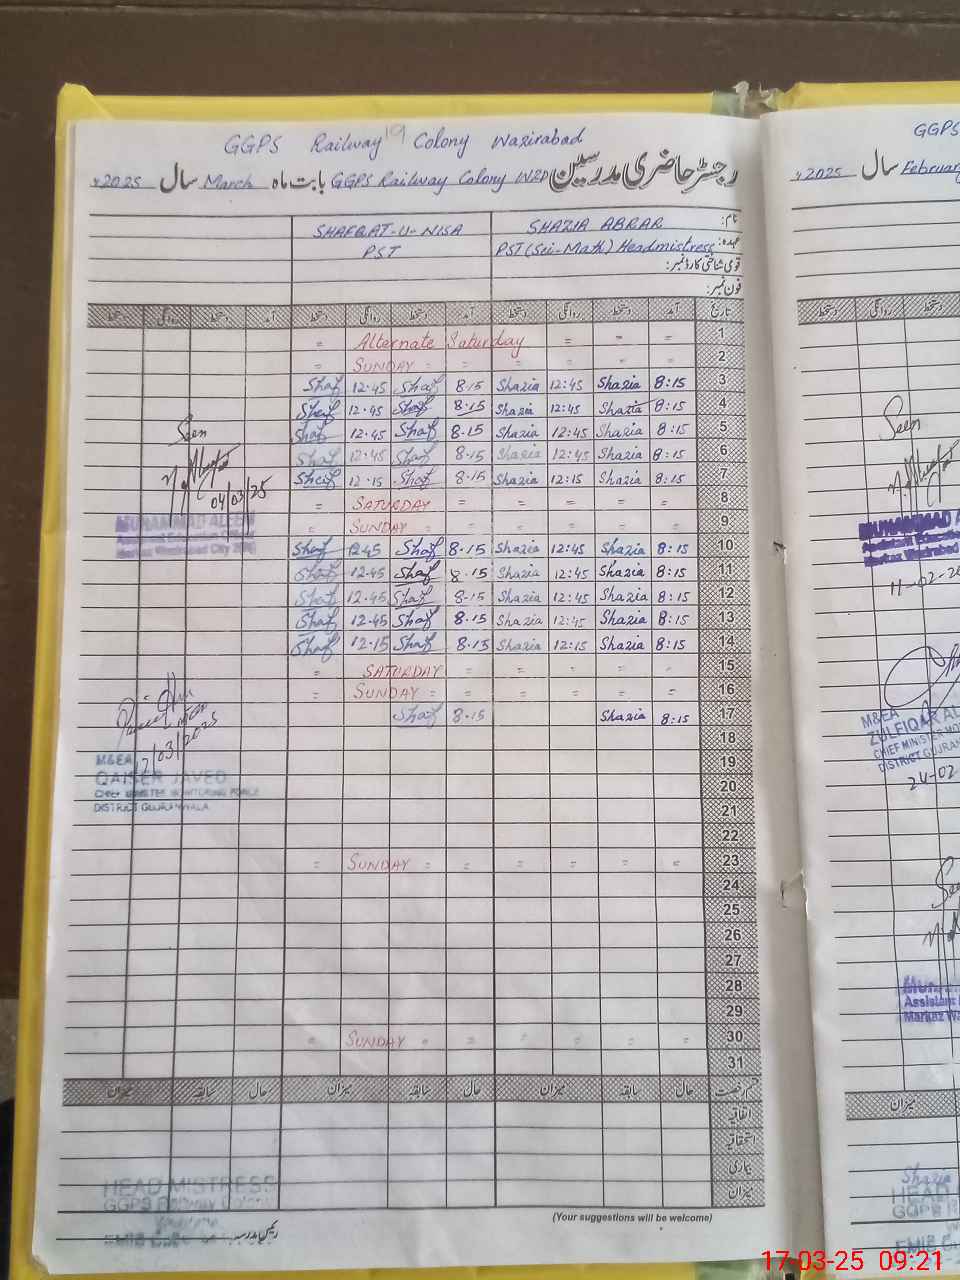 GGPS Railway Colony Wazirabad
19
رجسٹر حاضری مدرسین GGPS Railway Colony WZD بابت ماہ March سال 2025ء
نام: SHAZIA ABRAR SHAFQAT-U-NISA
عہدہ: PST (Sci-Math) Headmistress PST
قومی شناختی کارڈ نمبر:
فون نمبر:
تاریخ آمد دستخط روانگی دستخط آمد دستخط روانگی دستخط آمد دستخط روانگی دستخط
1 = = = Alternate Saturday =
2 = = = = = = SUNDAY =
3 8:15 Shazia 12:45 Shazia 8.15 Shaf 12.45 Shaf
4 8:15 Shazia 12:45 Shazia 8.15 Shaf 12.45 Shaf
5 8:15 Shazia 12:45 Shazia 8.15 Shaf 12.45 Shaf
6 8:15 Shazia 12:45 Shazia 8.15 Shaf 12.45 Shaf
7 8:15 Shazia 12:15 Shazia 8.15 Shaf 12.15 Shaf
8 = = = = = SATURDAY =
9 = = = = = = SUNDAY =
10 8:15 Shazia 12:45 Shazia 8.15 Shaf 12.45 Shaf
11 8:15 Shazia 12:45 Shazia 8.15 Shaf 12.45 Shaf
12 8:15 Shazia 12:45 Shazia 8.15 Shaf 12.45 Shaf
13 8:15 Shazia 12:45 Shazia 8.15 Shaf 12.45 Shaf
14 8:15 Shazia 12:15 Shazia 8.15 Shaf 12.15 Shaf
15 = = = = = SATURDAY =
16 = = = = = = SUNDAY =
17 8:15 Shazia 8.15 Shaf
18
19
20
21
22
23 = = = = = = SUNDAY =
24
25
26
27
28
29
30 = = = = = = SUNDAY =
31
Seen
04/03/25
MUHAMMAD ALEEM
Assistant Education Officer
Markaz Wazirabad City
12/03/2025
M&EA
QAISER JAVED
CHIEF MINISTER MONITORING FORCE
DISTRICT GUJRANWALA
قسم رخصت حال سابقہ میزان حال سابقہ میزان حال سابقہ میزان
اتفاقیہ
استحقاقیہ
بیماری
میزان
(Your suggestions will be welcome)
HEAD MISTRESS
GGPS Railway Colony
رئیس مدرسہ
GGPS
2025ء سال February
دستخط روانگی دستخط
Seen
MUHAMMAD
Assistant Education
Markaz Wazirabad
11-02-20
M&EA
ZULFIQAR AL
CHIEF MINISTER MO
DISTRICT GUJRAN
24-02
Muha
Assistant
Markaz Wa
میزان
Shazia
HEAD
GGPS R
17-03-25 09:21